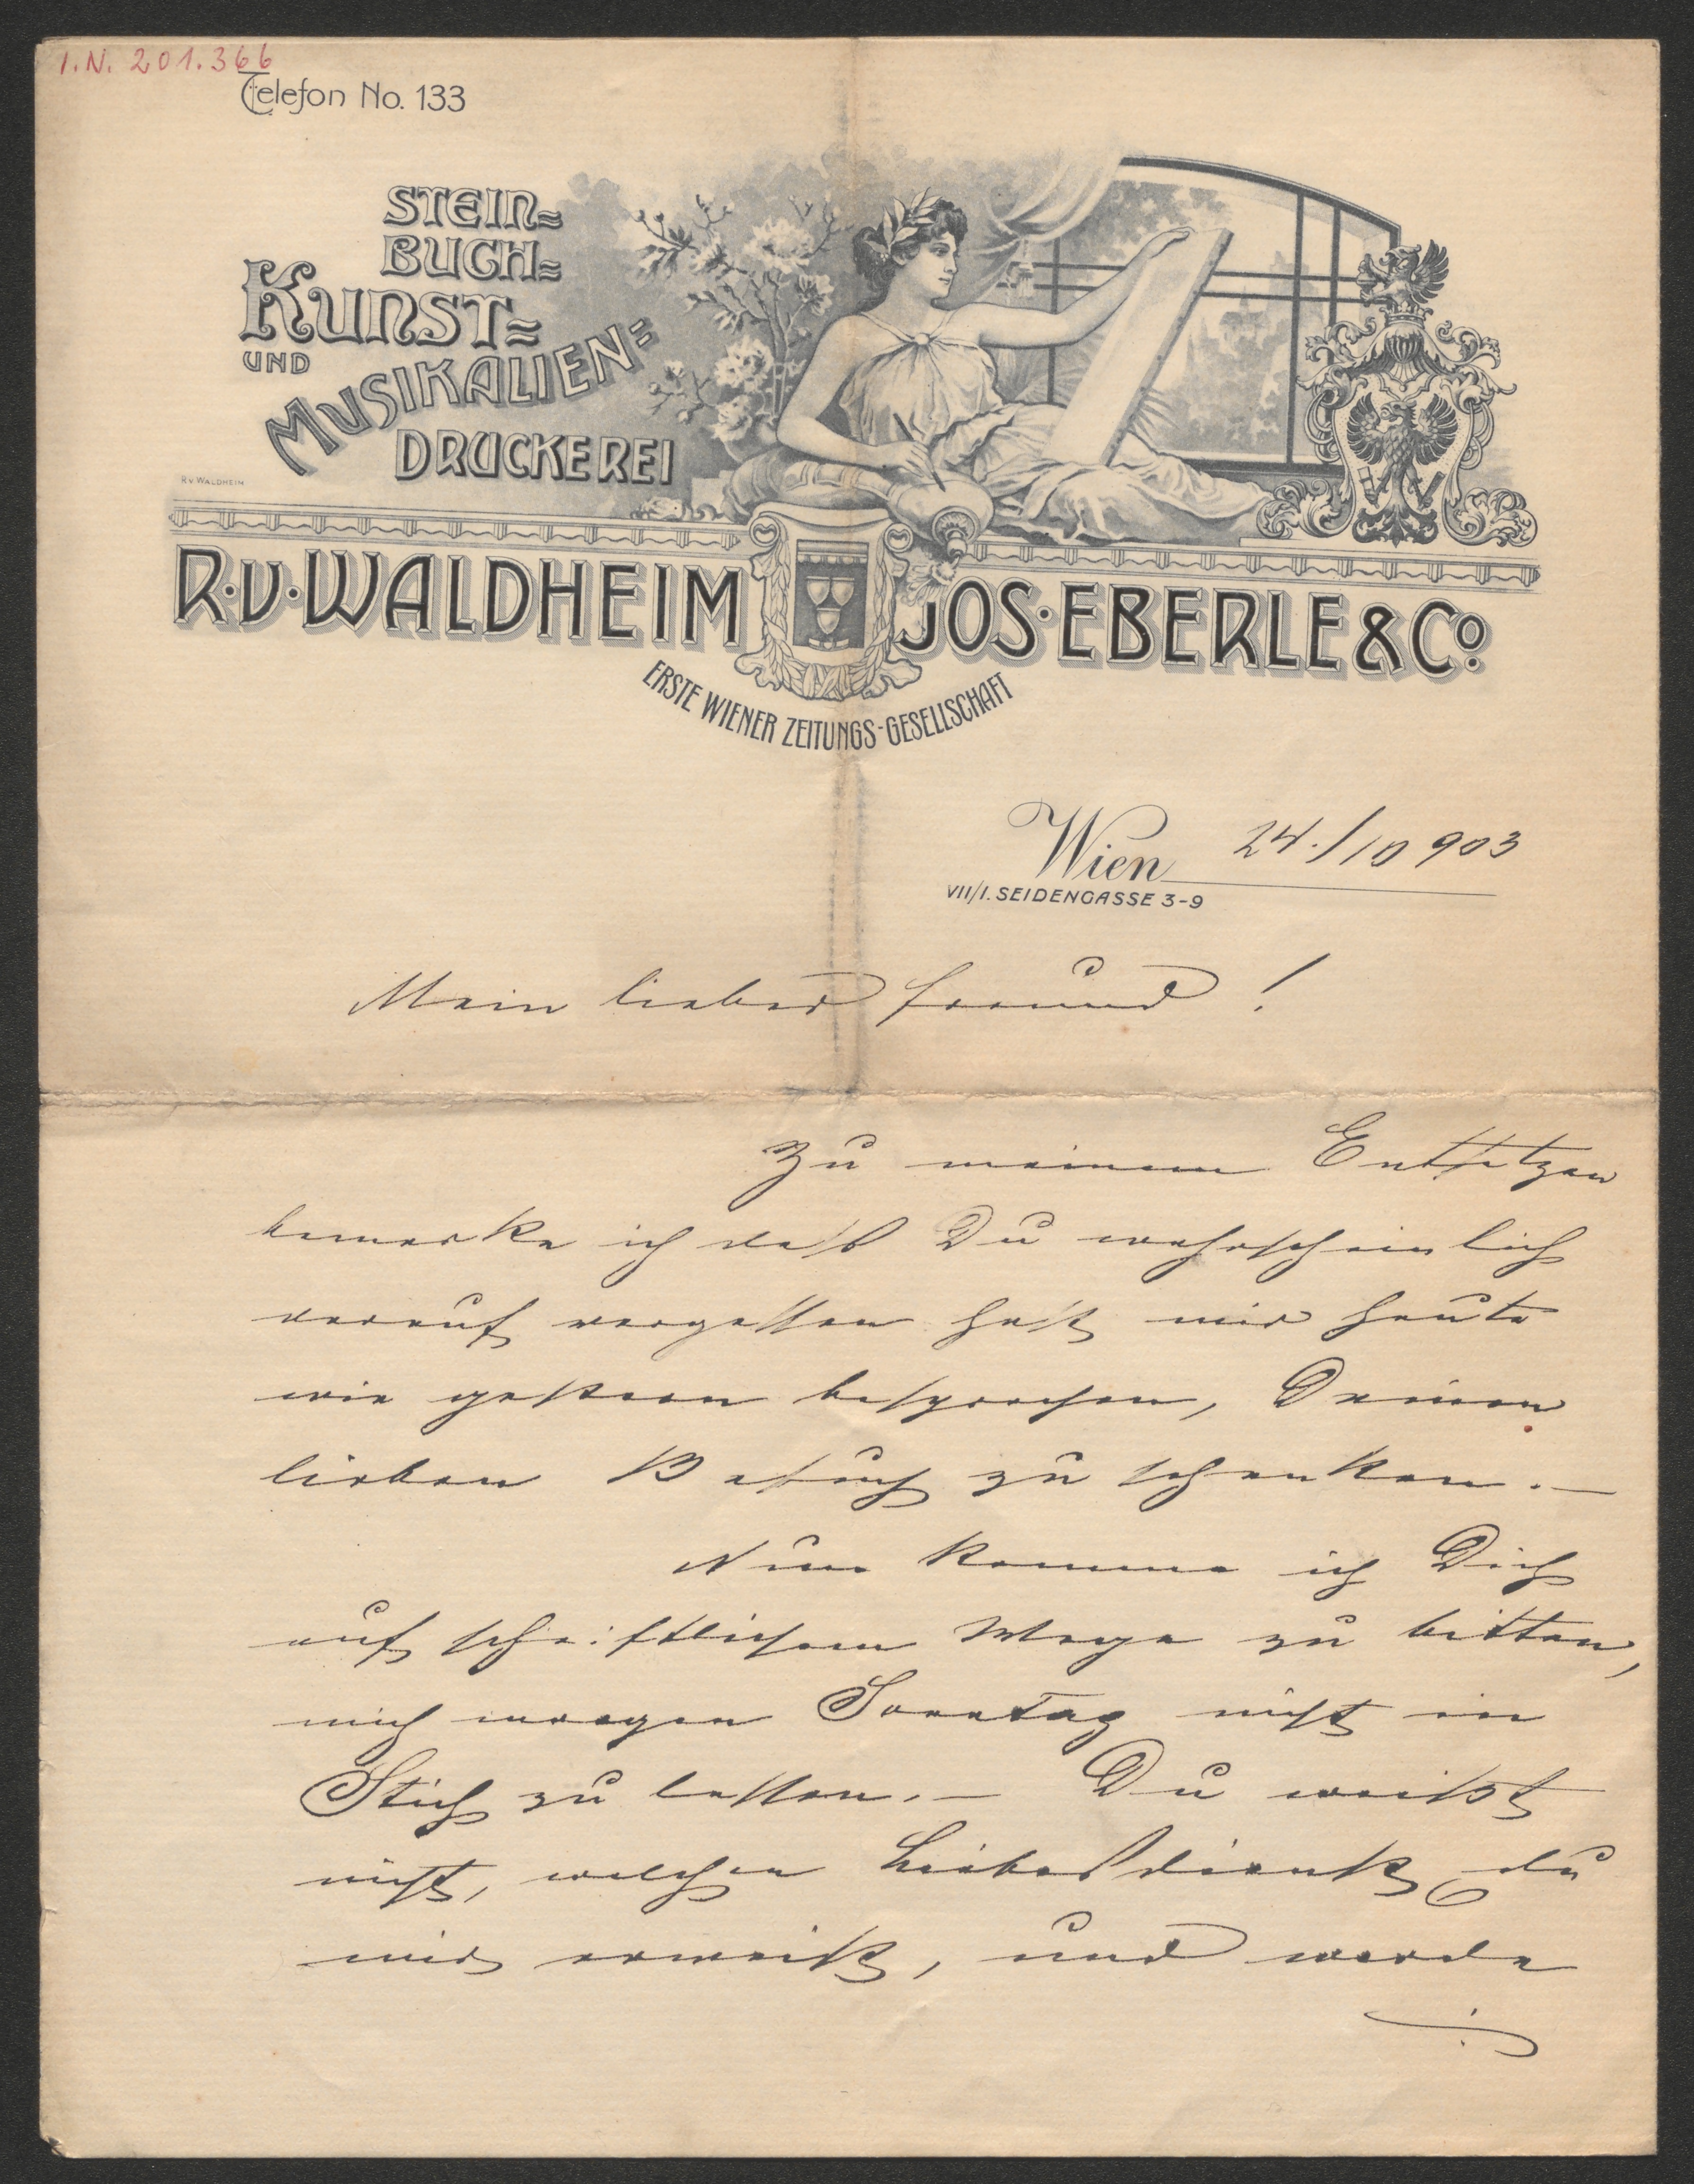 I.N. 201.366
Telefon No. 133
STEIN=
BUCH=
KUNST=
UND
MUSIKALIEN=
DRUCKEREI
R.V. WALDHEIM
R·V·WALDHEIM JOS·EBERLE & Co.
ERSTE WIENER ZEITUNGS-GESELLSCHAFT
Wien 24./10 903
VII/1. SEIDENGASSE 3-9
Mein lieber Freund!
Zu meinem Entsetzen
bemerke ich daß Du wahrscheinlich
darauf vergessen hast mir heute
wie gestern besprochen, Deinen
lieben Besuch zu schenken.—
Nun komme ich Dich
auf schriftlichem Wege zu bitten,
mich morgen Sonntag nicht in
Stich zu lassen.— Du weißt
nicht, welchen Liebesdienst du
mir erweist, und werde